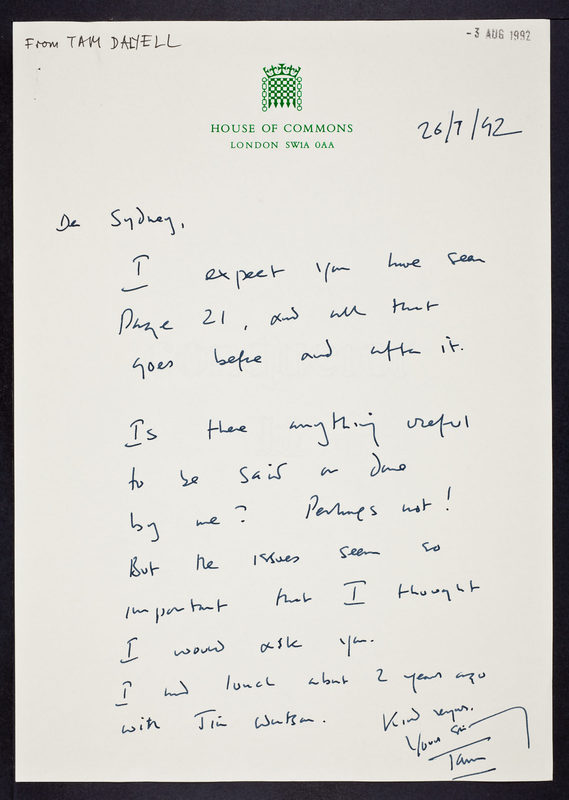 From TAM DALYELL
-3 AUG 1992
HOUSE OF COMMONS
LONDON SW1A 0AA
26/7/92
Dear Sydney,
I expect you have seen
Page 21, and all that
goes before and after it.
Is there anything useful
to be said or done
by me? Perhaps not!
But the issues seem so
important that I thought
I would ask you.
I had lunch about 2 years ago
with Jim Watson. Kind regards.
Yours
Tam